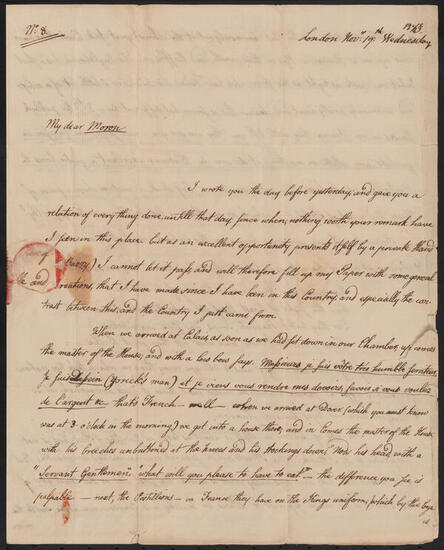 No. 8
1783
London Novr. 19th. Wednesday
My dear Moron
I wrote you the day before yesterday, and gave you a
relation of every thing done, untill that day, since when, nothing worth your remark have
I seen in this place but as an excellent opportunity, presents itself by a private Hand
I cannot let it pass and will therefore fill up my Paper with some general
observations, that I have made since I have been in this Country, and especially the con-
trast between this, and the Country I just came from.
When we arrived at Calais, as soon as we had set down in our Chamber, up comes
the master of the House, and with a low bow says. Messieurs je suis vôtre tres humble serviteur,
Je suis Dessein (Yorick's man) et je viens vous rendre mes devoirs, savoir si vous voulez
de l'argent &c that's French — well — when we arrived at Dover (which you must
know was at 3 o'clock in the morning) we got into a house there, and in comes the master of the House
with his breeches unbuttoned at the knees and his stockings down, Nods his head, with a
"Servant Gentlemen" "what will you please to have to eat" — the difference you see is
palpable — next, the Postillions — in France they have on the Kings uniform, which by the bye
is